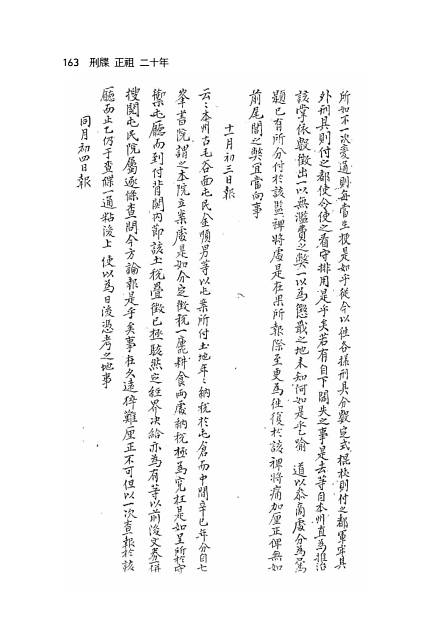 163 刑牒 正祖 二十年
所如不一次變通則每當生梗是如乎從今以往各樣刑具分數定式棍杖則付之都軍牢具
外刑具則付之都使令使之看守排用是乎矣若有自下闕失之事是去等自本州直為推治
該掌依數徵出一以無濫費之弊一以為懲戢之地未知何如是乎喻 道以參商處分為
題已有所分付於該監裨將處是在果所報除至更為往復於該裨將痛加厘正俾無如
前尾閭之弊宜當向事
十一月初三日報
云云本州古毛谷面屯民金 男等以屯案所付土地年年納稅於屯倉而中間辛巳年分自七
峯書院謂之本院立案處是如分定徵稅一庫耕食兩處納稅極為冤枉是如呈所於
禦屯廳而到付背關內節該土稅疊徵已極駭然定經界決給亦為有等以前後文券
搜閱屯民院屬逐條查問今方論報是乎矣事在久遠猝難厘正不可但以一次查報於該
廳而止乙仍于查條一通粘後上使以為日後憑考之地事
同月初四日報